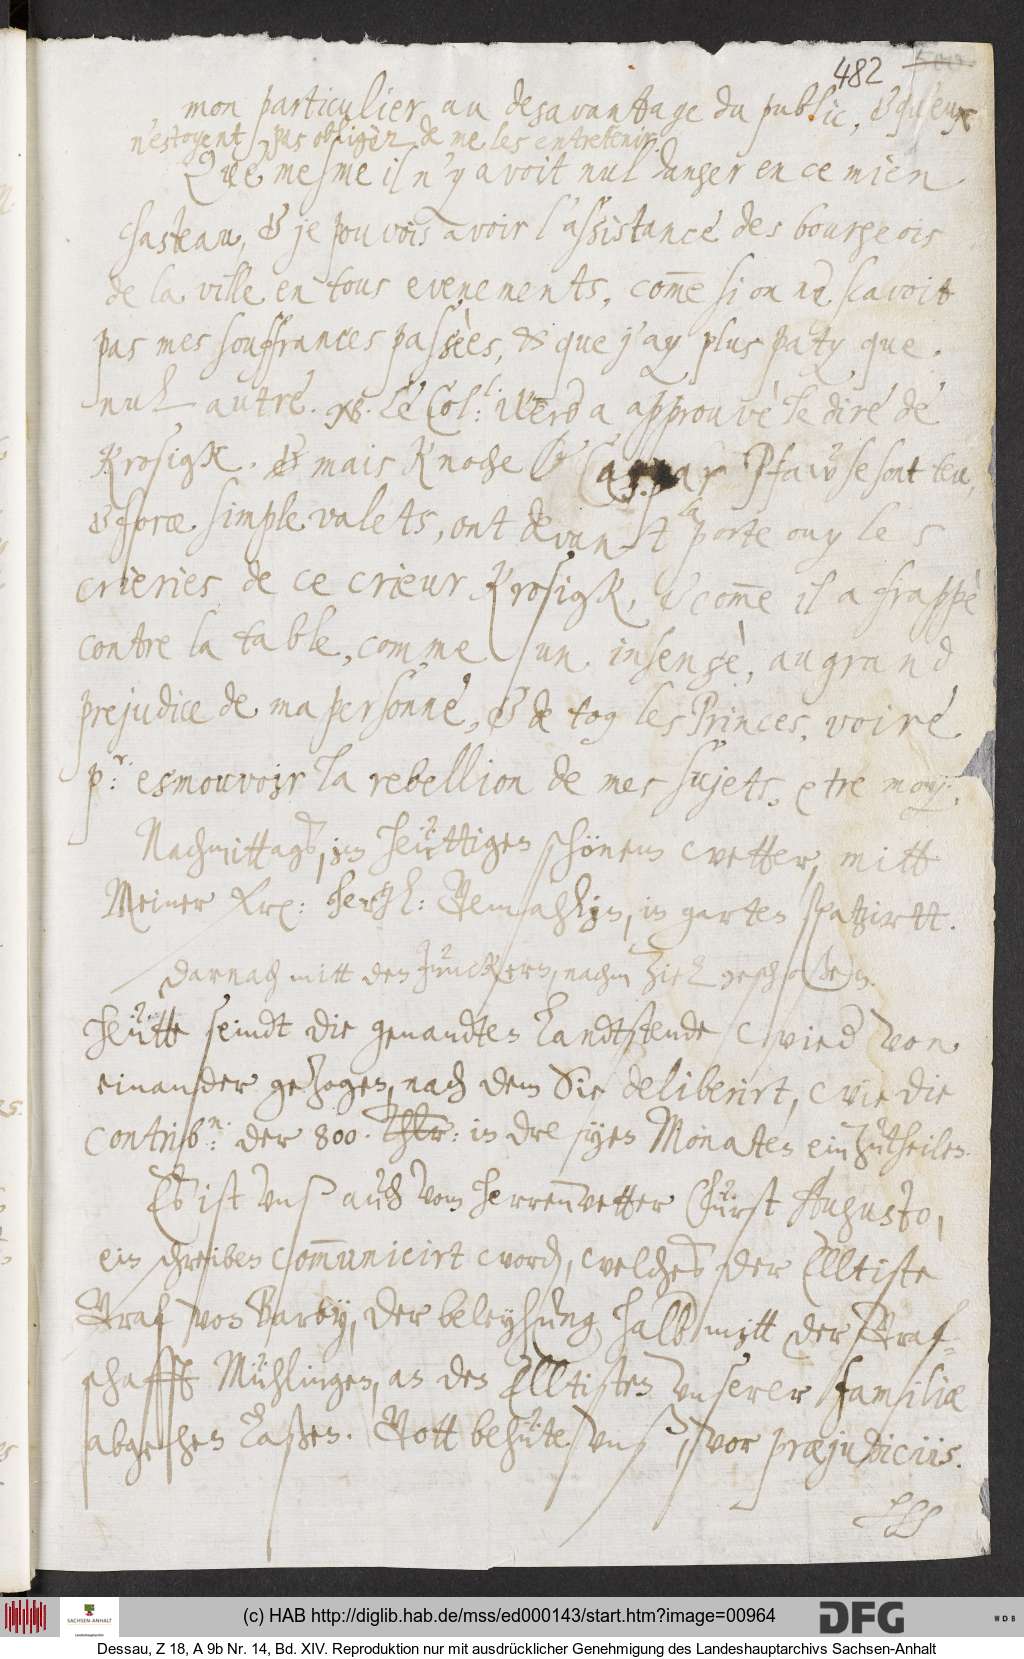 482
mon particulier, au desavantage du public, & qu'eux
n'estoyent pas obligèz de me les entretenir.
Que mesme il n'y avoit nul danger en ce mien
chasteau, & je pouvois avoir l'assistance des bourgeois
de la ville en tous evenements, com̅e si on ne scavoit
pas mes souffrances passèes, & que j'ay plus paty, que
nul autre. NB. Le Col: Werd a approuvè le dire de
Krosigk. & mais Knoche & Caspar Pfau se sont teu,
& force simple valets, ont devant la porte ouy les
crieries de ce crieur Krosigk, & com̅e il a frappè
contre la table, comme un insensè, au grand
prejudice de ma personne, & de tous les Princes, voire
p.r esmouvoir la rebellion de mes sujets, c̵tre moy.
Nachmittags, in heüttigem schönem wetter, mitt
Meiner freundlichen hertzl: Gemahlin, in garten spatzirt.
Darnach mitt den Junckern, nachm Ziel geschoßen.
Heütte seindt die gesandten Landtstende wied von
einander gezogen, nach dem Sie deliberirt, wie die
Contrib.n: der 800 Thlr: in dreyen Monaten einzutheilen.
Es ist unß auch vom herrenvetter Fürst Augusto,
ein schreiben com̅unicirt word, welches der Elltiste
Graf von Barby, der beleyhung halb mitt der Graf-
schafft Mühlingen, an den Elltisten unserer familiæ
abgehen laßen. Gott behüte unß, vor præjudiciis.
(c) HAB http://diglib.hab.de/mss/ed000143/start.htm?image=00964
SACHSEN-ANHALT
DFG
WDB
Dessau, Z 18, A 9b Nr. 14, Bd. XIV. Reproduktion nur mit ausdrücklicher Genehmigung des Landeshauptarchivs Sachsen-Anhalt